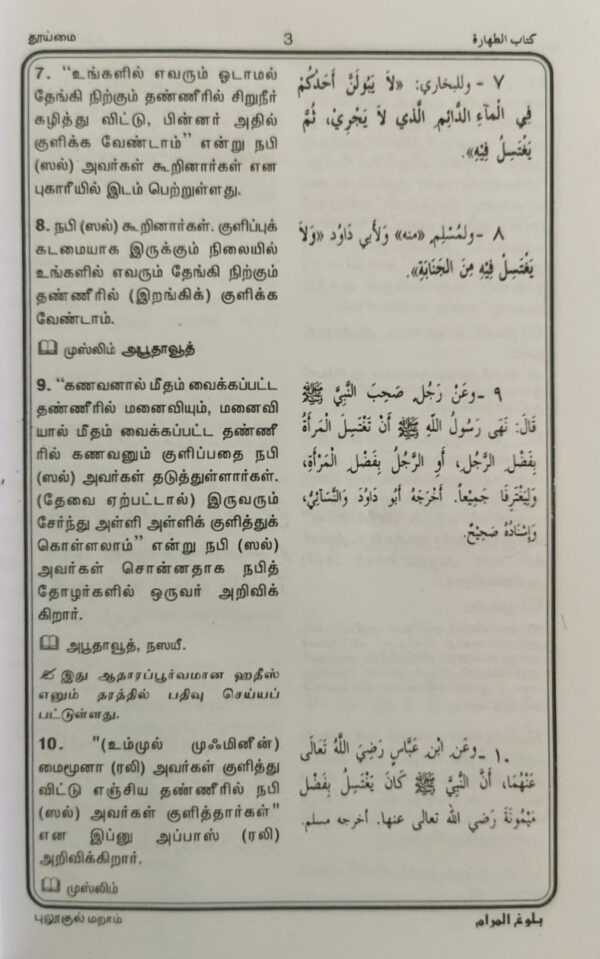 தூய்மை
3
كتاب الطهارة
7. “உங்களில் எவரும் ஓடாமல்
தேங்கி நிற்கும் தண்ணீரில் சிறுநீர்
கழித்து விட்டு, பின்னர் அதில்
குளிக்க வேண்டாம்” என்று நபி
(ஸல்) அவர்கள் கூறினார்கள் என
புகாரீயில் இடம் பெற்றுள்ளது.
٧ - وللبخاري: «لاَ يَبُولَنَّ أَحَدُكُمْ
فِي الْمَآءِ الدَّائِمِ الَّذي لاَ يَجْرِيْ، ثُمَّ
يَغْتَسِلُ فِيْهِ».
8. நபி (ஸல்) கூறினார்கள். குளிப்புக்
கடமையாக இருக்கும் நிலையில்
உங்களில் எவரும் தேங்கி நிற்கும்
தண்ணீரில் (இறங்கிக்) குளிக்க
வேண்டாம்.
முஸ்லிம் அபூதாவூத்
٨ - ولمُسْلِمٍ «منه» وَلأبي دَاوُد «وَلاَ
يَغْتَسِلُ فِيْهِ مِنَ الجَنَابَةِ».
9. “கணவனால் மீதம் வைக்கப்பட்ட
தண்ணீரில் மனைவியும், மனைவி
யால் மீதம் வைக்கப்பட்ட தண்ணீ
ரில் கணவனும் குளிப்பதை நபி
(ஸல்) அவர்கள் தடுத்துள்ளார்கள்.
(தேவை ஏற்பட்டால்) இருவரும்
சேர்ந்து அள்ளி அள்ளிக் குளித்துக்
கொள்ளலாம்” என்று நபி (ஸல்)
அவர்கள் சொன்னதாக நபித்
தோழர்களில் ஒருவர் அறிவிக்
கிறார்.
அபூதாவூத், நஸயீ.
இது ஆதாரப்பூர்வமான ஹதீஸ்
எனும் தரத்தில் பதிவு செய்யப்
பட்டுள்ளது.
٩ - وعَنْ رَجُلٍ صَحِبَ النَّبِيَّ ﷺ
قَالَ: نَهَى رَسُولُ اللّهِ ﷺ أَنْ تَغْتَسِلَ المَرأَةُ
بِفَضْلِ الرَّجُلِ، أَوِ الرَّجُلُ بِفَضْلِ المَرْأَةِ،
وَلِيَغْتَرِفَا جَمِيْعاً. أَخْرَجَهُ أَبُو دَاوُدَ وَالنَّسَائِيُّ،
وَإِسْنَادُهُ صَحِيْحٌ.
10. "(உம்முல் முஃமினீன்)
மைமூனா (ரலி) அவர்கள் குளித்து
விட்டு எஞ்சிய தண்ணீரில் நபி
(ஸல்) அவர்கள் குளித்தார்கள்"
என இப்னு அப்பாஸ் (ரலி)
அறிவிக்கிறார்.
முஸ்லிம்
١٠ - وعَنِ ابْنِ عَبَّاسٍ رَضِيَ اللّهُ تَعَالَى
عَنْهُمَا، أَنَّ النَّبِيَّ ﷺ كَانَ يَغْتَسِلُ بِفَضْلِ
مَيْمُونَةَ رَضي الله تعالى عنها. أخرجه مسلم.
புலூகுல் மறாம்
بلوغ المرام